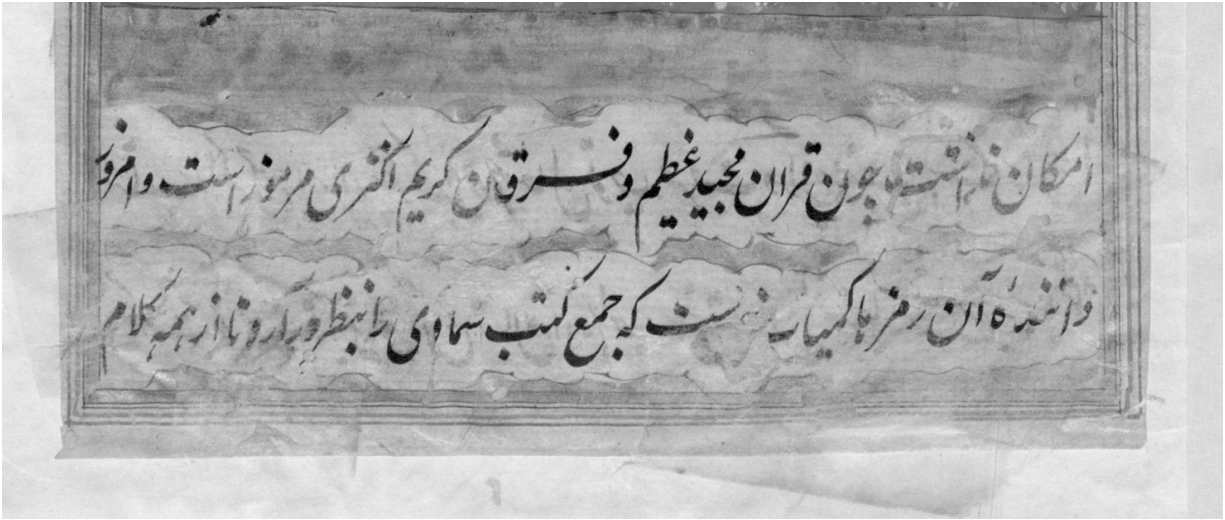 امکان نداشت چون قران مجید عظیم و فرقان کریم اکثری مرموز است و امروز
داننده آن رمزها کمیاب است که جمع کتب سماوی را بنظر درآرد و تا از همه کلام